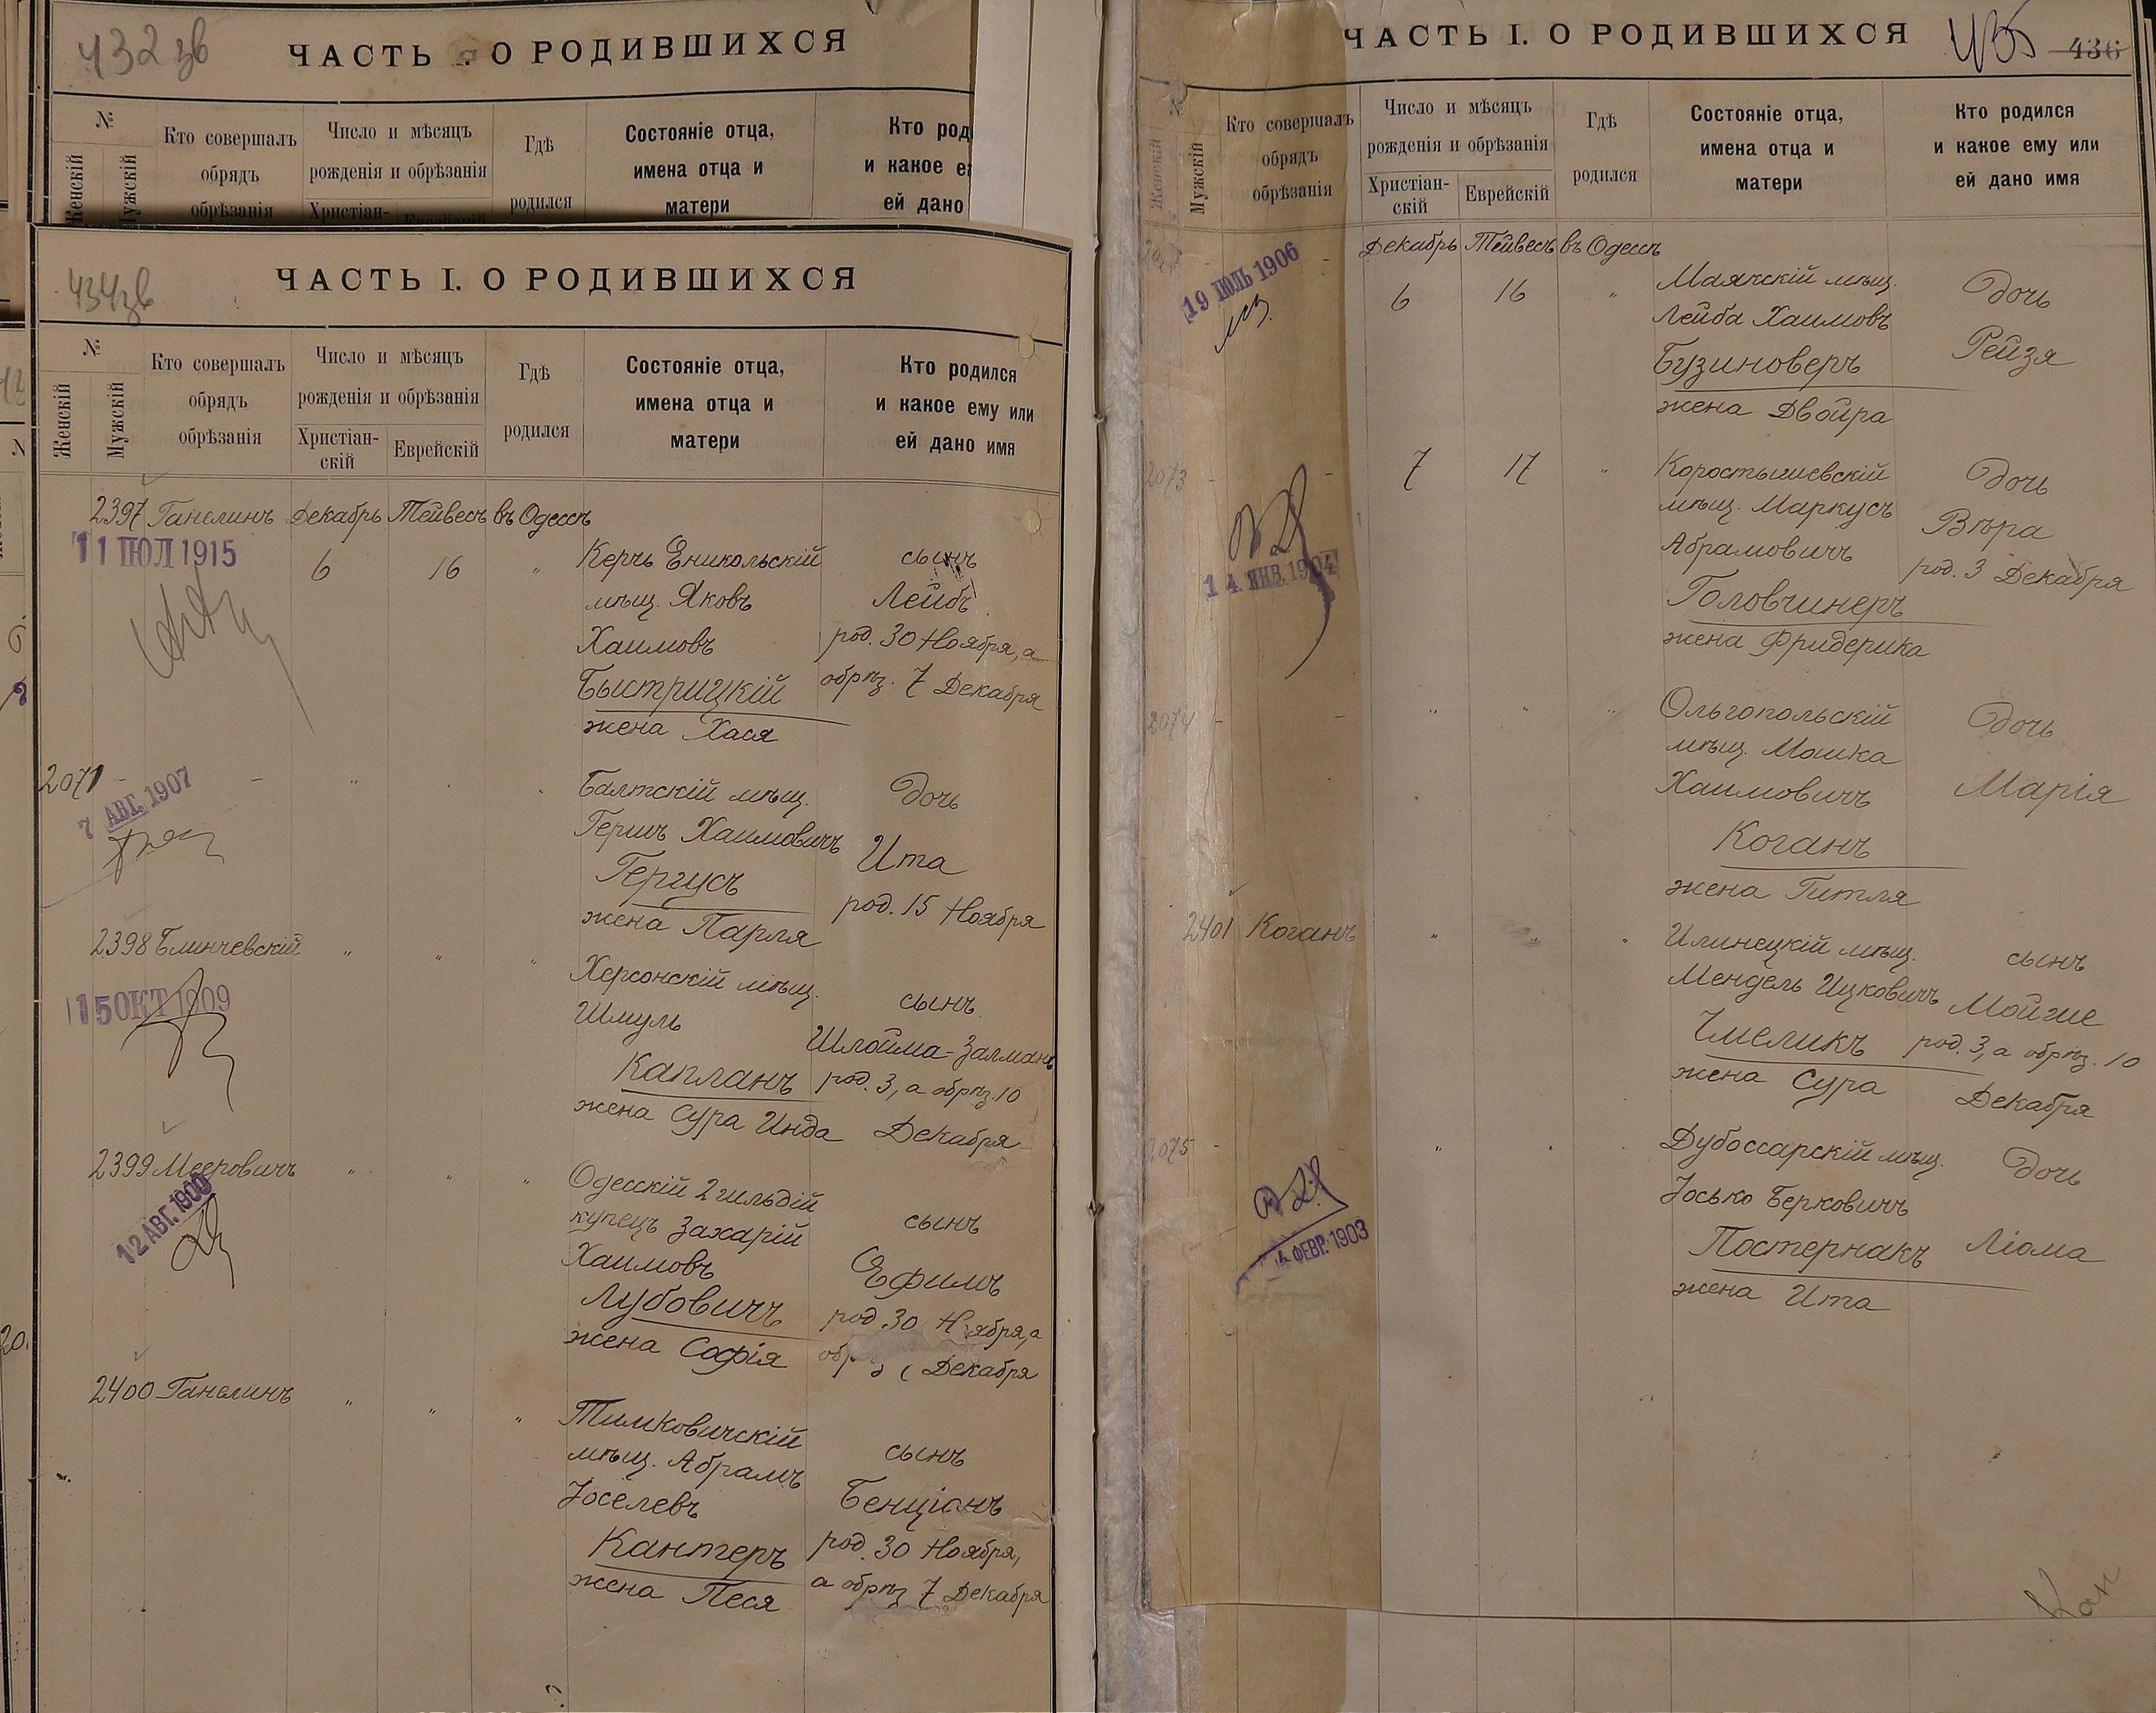 432 зв
ЧАСТЬ I. О РОДИВШИХСЯ
№
Женскій
Мужскій
Кто совершалъ
обрядъ
обрѣзанія
Число и мѣсяцъ
рожденія и обрѣзанія
Христіан-
Еврейскій
Гдѣ
родился
Состояніе отца,
имена отца и
матери
Кто род
и какое е
ей дано
434 зв
ЧАСТЬ I. О РОДИВШИХСЯ
№
Женскій
Мужскій
Кто совершалъ
обрядъ
обрѣзанія
Число и мѣсяцъ
рожденія и обрѣзанія
Христіан-
скій
Еврейскій
Гдѣ
родился
Состояніе отца,
имена отца и
матери
Кто родился
и какое ему или
ей дано имя
2397 Ганелинъ Декабрь Тейвесъ въ Одессѣ
11 ІЮЛ 1915
6 16 "
Керчь Еникольскій
мѣщ. Яковъ
Хаимовъ
Быстрицкій
жена Хася
сынъ
Лейбъ
род. 30 Ноября, а
обрѣз. 7 Декабря
2071 - - " " "
7 АВГ. 1907
Балтскій мѣщ.
Гершъ Хаимовичъ
Гергусъ
жена Парля
Дочь
Ита
род. 15 Ноября
2398 Блинчевскій " " "
15 ОКТ 1909
Херсонскій мѣщ.
Шмуль
Капланъ
жена Сура Инда
сынъ
Шлойма-Залманъ
род. 3, а обрѣз. 10
Декабря
2399 Мееровичъ " " "
12 АВГ. 1900
Одесскій 2 гильдій
купецъ Захарій
Хаимовъ
Лубовичъ
жена Софія
сынъ
Ефимъ
род. 30 Ноября, а
Декабря
2400 Ганелинъ " " "
Тимковичскій
мѣщ. Абрамъ
Іоселевъ
Кантеръ
жена Песя
сынъ
Бенціонъ
род. 30 Ноября,
а обрѣз 7 Декабря
ЧАСТЬ I. О РОДИВШИХСЯ
435 436
№
Женскій
Мужскій
Кто совершалъ
обрядъ
обрѣзанія
Число и мѣсяцъ
рожденія и обрѣзанія
Христіан-
скій
Еврейскій
Гдѣ
родился
Состояніе отца,
имена отца и
матери
Кто родился
и какое ему или
ей дано имя
Декабрь Тейвесъ въ Одессѣ
2072 - -
19 ІЮЛЬ 1906
6 16 "
Маякскій мѣщ.
Лейба Хаимовъ
Бузиноверъ
жена Двойра
Дочь
Рейзя
2073 - - 7 17 "
14 ЯНВ. 1904
Коростышевскій
мѣщ. Маркусъ
Абрамовичъ
Головчинеръ
жена Фридерика
Дочь
Вѣра
род. 3 Декабря
2074 - - " " "
Ольгопольскій
мѣщ. Мошка
Хаимовичъ
Коганъ
жена Гитля
Дочь
Марія
2401 Коганъ " " "
Илинецкій мѣщ.
Мендель Ицковичъ
Чмеликъ
жена Сура
сынъ
Мойше
род. 3, а обрѣз. 10
Декабря
2075 - " " "
4 ФЕВР. 1903
Дубоссарскій мѣщ.
Іосько Берковичъ
Постернакъ
жена Ита
Дочь
Ліома